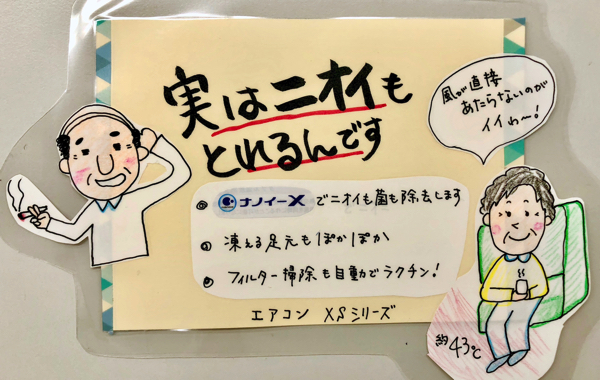 実はニオイも
とれるんです
風が直接
あたらないのが
イイわ〜!
ナノイーX でニオイも菌も除去します
凍える足元もぽかぽか
フィルター掃除も自動でラクチン!
エアコン XSシリーズ
約43℃